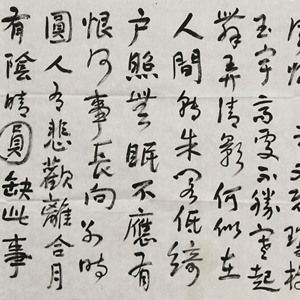 又恐瓊樓
玉宇高處不勝寒起
舞弄清影何似在
人間轉朱閣低綺
户照無眠不應有
恨何事長向別時
圓人有悲歡離合月
有陰晴圓缺此事